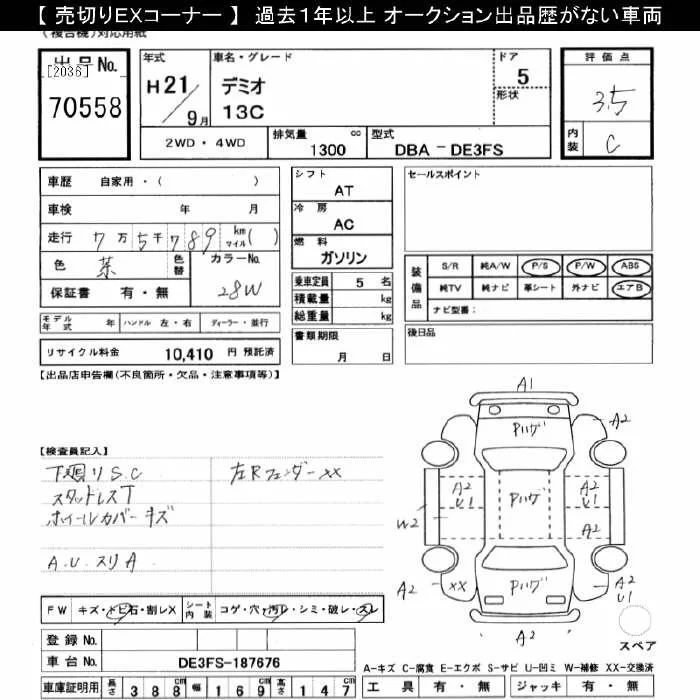 【 売切りEXコーナー 】 過去1年以上 オークション出品歴がない車両
(複合機)対応用紙
出品No.
[2036]
70558
年式
H21/9月
車名・グレード
デミオ
13C
ドア
5
形状
評価点
3.5
内装
C
2WD・4WD
排気量 cc
1300
型式
DBA － DE3FS
車歴 自家用・( )
車検 年 月
走行 7万5千789 km マイル( )
色 茶 色替
カラーNo.
28W
保証書 有・無
モデル年式 年 ハンドル 左・右 ディーラー・並行
リサイクル料金 10,410 円 預託済
シフト
AT
冷房
AC
燃料
ガソリン
乗車定員 5 名
積載量 kg
総重量 kg
書類期限
月 日
セールスポイント
装備品
S/R 純A/W P/S P/W ABS
純TV 純ナビ 革シート 外ナビ エアB
ナビ型番:
後日品
【出品店申告欄(不良箇所・欠品・注意事項等)】
【検査員記入】
下廻りS.C 左Rフェンダーxx
スタットレスT
ホイールカバーキズ
A.U.スリA
FW キズ・トビ石・割レX シート内装 コゲ・穴・汚レ・シミ・破レ・スレ
登録No.
車台No. DE3FS-187676
車庫証明用 長さ 388 幅 169 高さ 147
A1
A2
Pハゲ
Pハゲ
A2
U1
A2
U1
W2
A2
A2
xx
Pハゲ
A2
U1
A2
スペア
A-キズ C-腐食 E-エクボ S-サビ U-凹ミ W-補修 XX-交換済
工具 有・無 ジャッキ 有・無